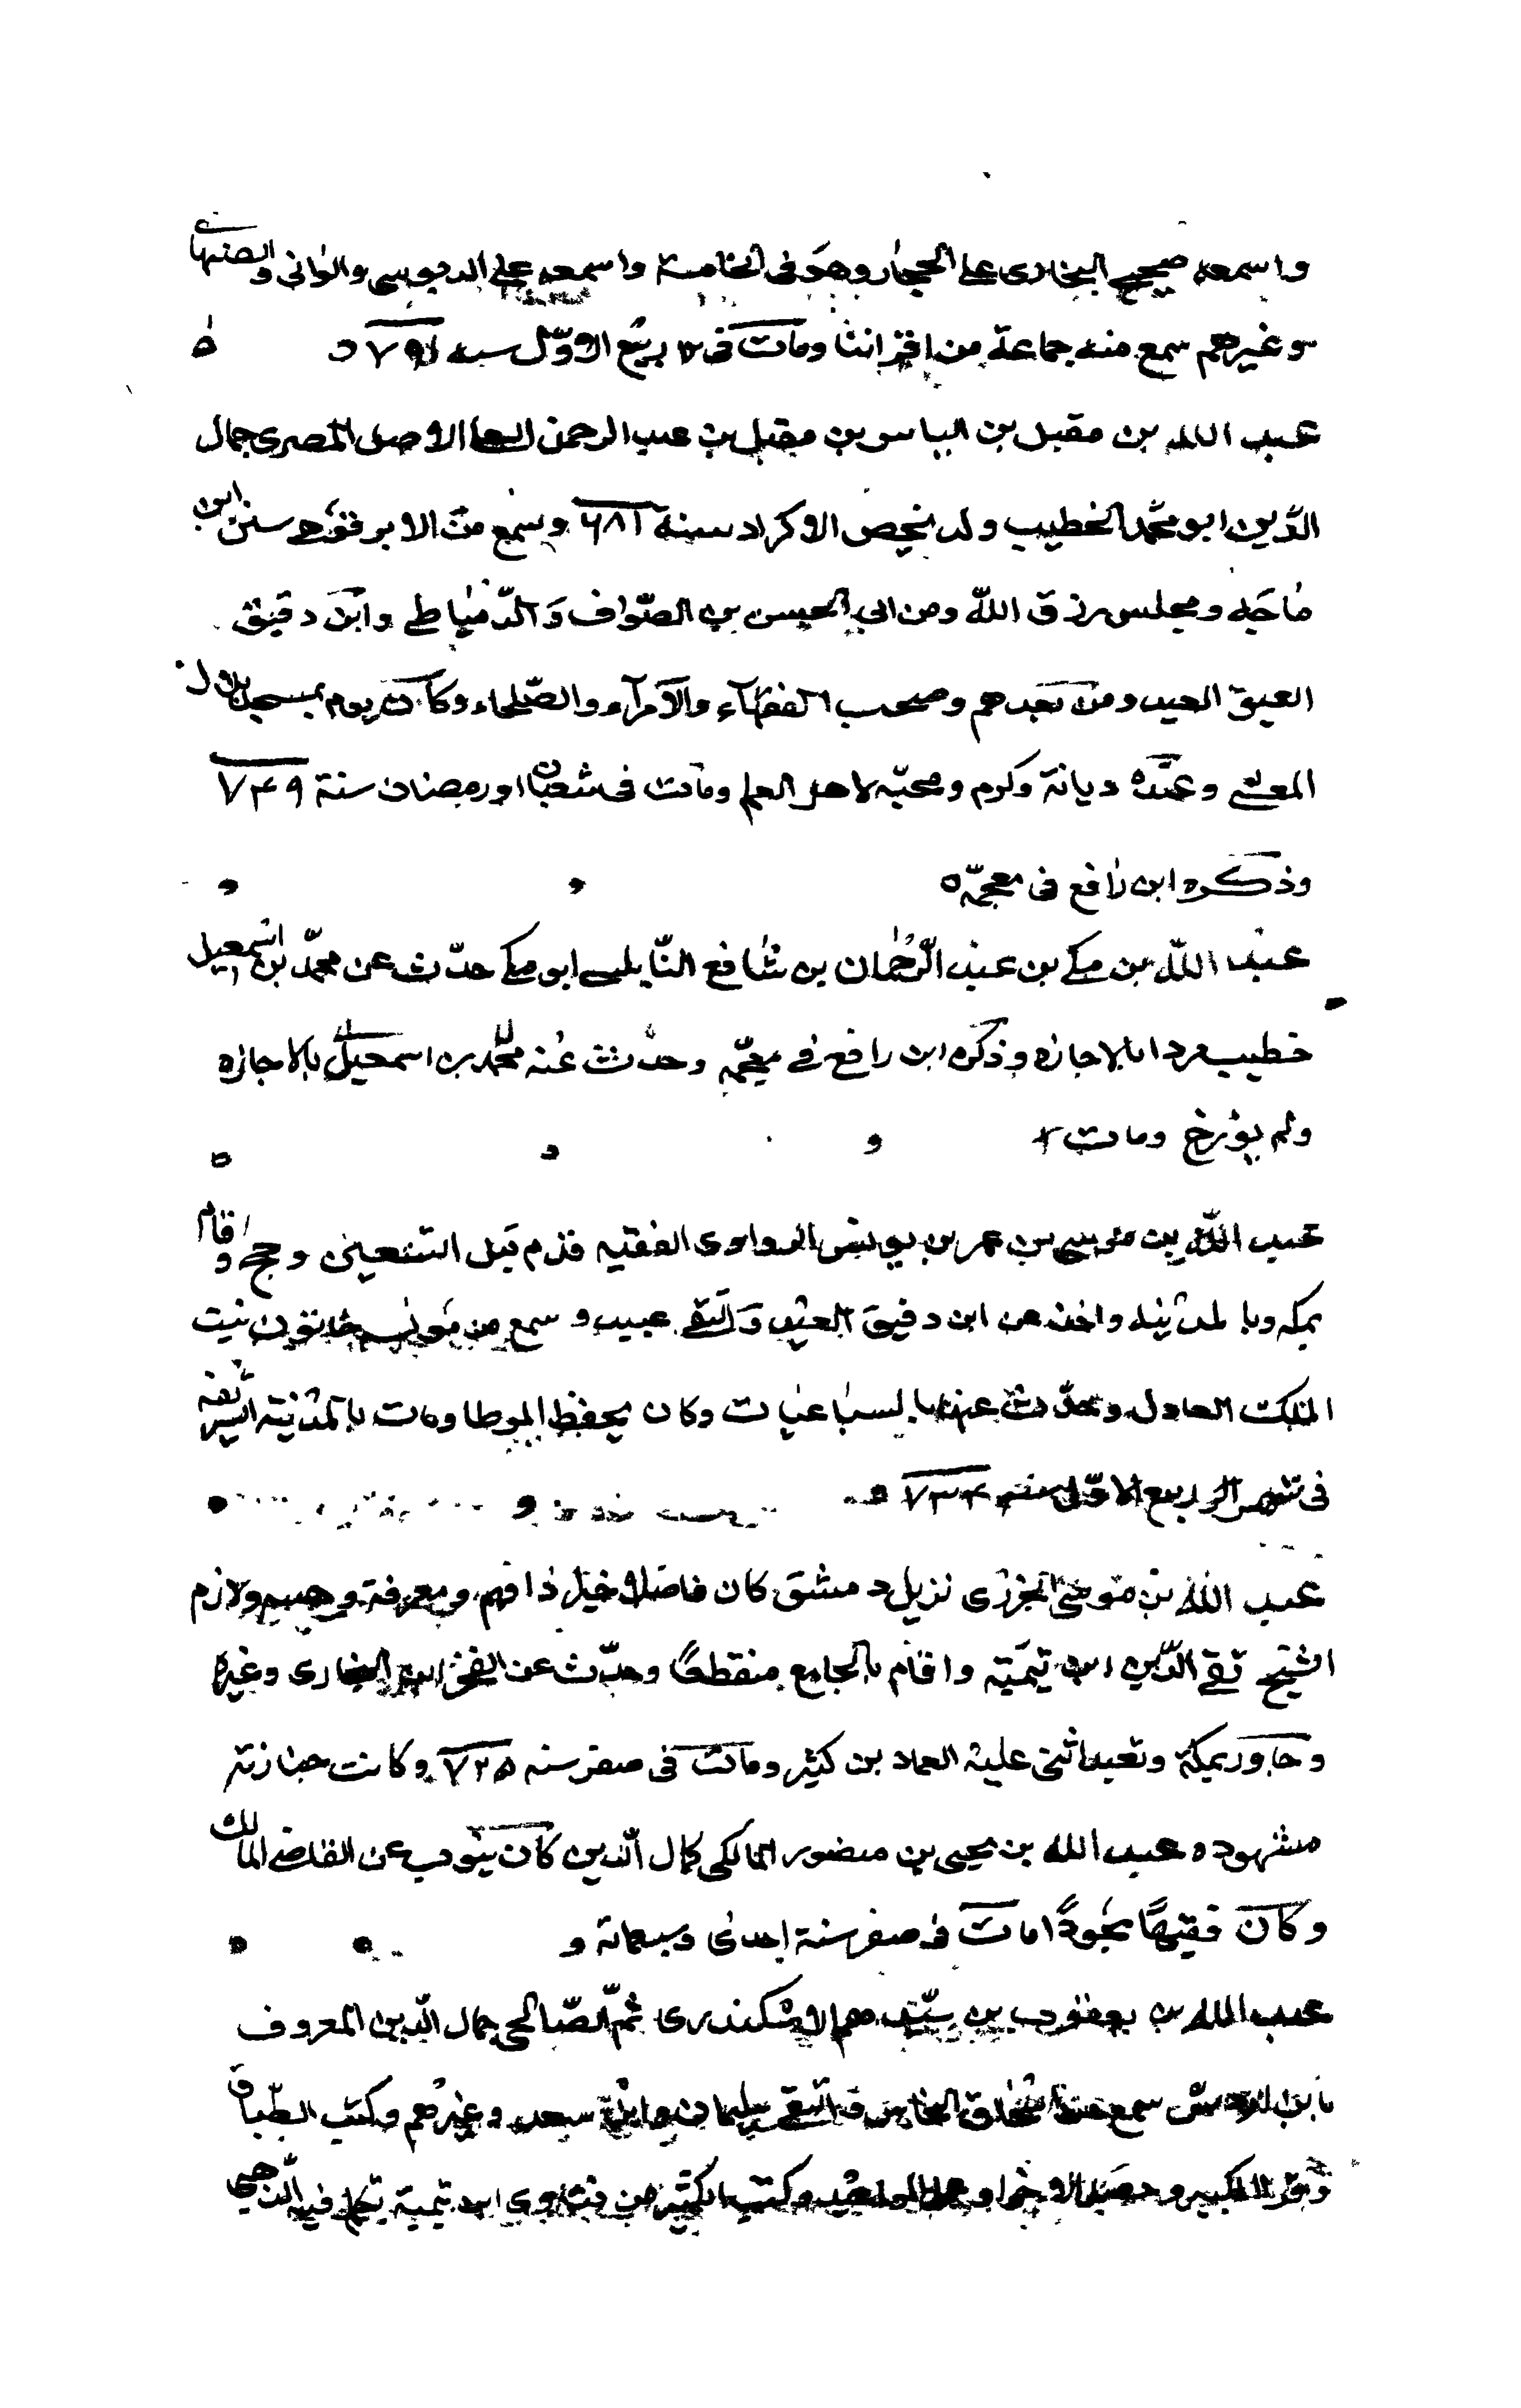 واسمعه صحيح البخارى على الحجار وهو فى الخامسة واسمعه على الدبوسى والوانى والصنهاجى
وغيرهم سمع منه جماعة من اقراننا ومات فى ربيع الاول سنه ٧٩١
عبد الله بن مقبل بن الياس بن مقبل بن عبد الرحمن الاصل المصرى جمال
الدين ابو محمد الخطيب ولد بحصن الاكراد سنة ٦٨١ وسمع من الابرقوهى سنن ابن
ماجه ومجلس رزق الله ومن ابي الحسن بن الصواف والدمياطى وابن دقيق
العيد ومن بعدهم وصحب الفقهاء والامراء والصلحاء وكان يوم بمسجد
وعنده ديانة وكرم ومحبه لاهل العلم ومات فى شعبان او رمضان سنة ٧٤٩
وذكره ابن رافع فى معجمه
عبد الله بن مكى بن عبد الرحمان بن شافع النابلسى ابو مكى حدث عن محمد بن اسمعيل
خطيب مردا بالاجازه وذكره ابن رافع فى معجمه وحدث عنه محمد بن اسمعيل بالاجازه
ولم يؤرخ ومات
عبد الله بن موسى بن عمر بن يونس الزواوى الفقيه قدم قبل التسعين وحج واقام
بمكه وبالمدينه واخذ عن ابن دقيق العيد والتقى عبيد وسمع من مونسه خاتون بنت
الملك العادل وحدث عنها بالسباعيات وكان يحفظ الموطا ومات بالمدينة الشريفه
فى شهر ربيع الاول سنه ٧٣٤
عبد الله بن موسى الجزرى نزيل دمشق كان فاضلا خيرا ذا فهم ومعرفة ولازم
الشيخ تقى الدين ابن تيمية واقام بالجامع منقطعا وحدث عن الفخر ابن البخارى وغيره
وجاور بمكة وتعبد اثنى عليه العماد بن كثير ومات فى صفر سنه ٧٢٥ وكانت جنازته
مشهوده عبد الله بن يحيى بن منصور المالكى كمال الدين كان ينوب عن القاضى المالك
وكان فقيها مجودا مات فى صفر سنة احدى وسبعمائة
عبد الله بن يعقوب بن سيدهم الاسكندرى ثم الصالحى جمال الدين المعروف
بابن سمع من التقى سليمان وابن سعد وغيرهم وكتب الطباق
وقرا الكثير وحصل الاجزاء وعمل المواعيد وكتب الكثير من فتاوى ابن تيمية تكلم فيه الذهبى